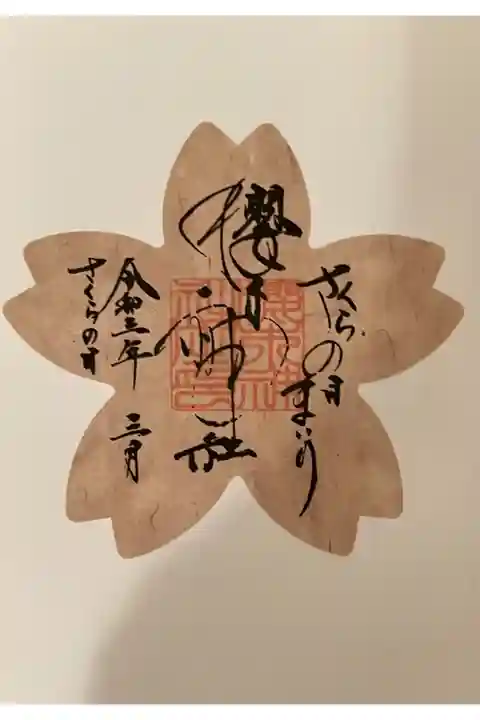 さくらの日まいり
櫻木神社
櫻木神社印
令和三年 三月
さくらの日